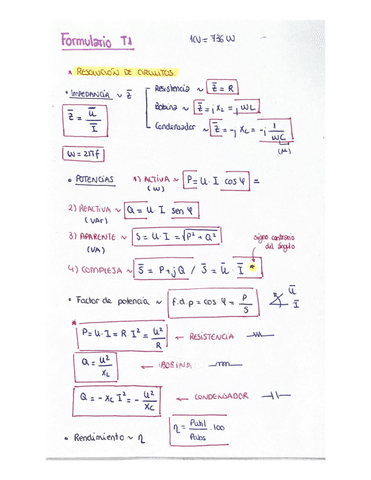 Formulario T1 1CV = 736 W
* RESOLUCIÓN DE CIRCUITOS.
• IMPEDANCIA ~ Z̅
Z̅ = U̅ / I̅
Resistencia ~ Z̅ = R
Bobina ~ Z̅ = j XL = j ωL
Condensador ~ Z̅ = -j Xc = -j 1/ωC
(μ)
ω = 2πf
• POTENCIAS 1) ACTIVA ~ P = U · I cos φ =
(W)
2) REACTIVA ~ Q = U · I sen φ
(VAr)
3) APARENTE ~ S = U · I = √P² + Q²
(VA)
signo contrario del ángulo
4) COMPLEJA ~ S̅ = P + jQ / S̅ = U̅ · I̅ *
• Factor de potencia ~ f.d.p = cos φ = P/S
U̅
I̅
* P = U · I = R I² = U²/R ← RESISTENCIA
Q = U²/XL ← BOBINA
Q = - Xc I² = - U²/Xc ← CONDENSADOR
• Rendimiento ~ η η = Pútil/Pabs · 100